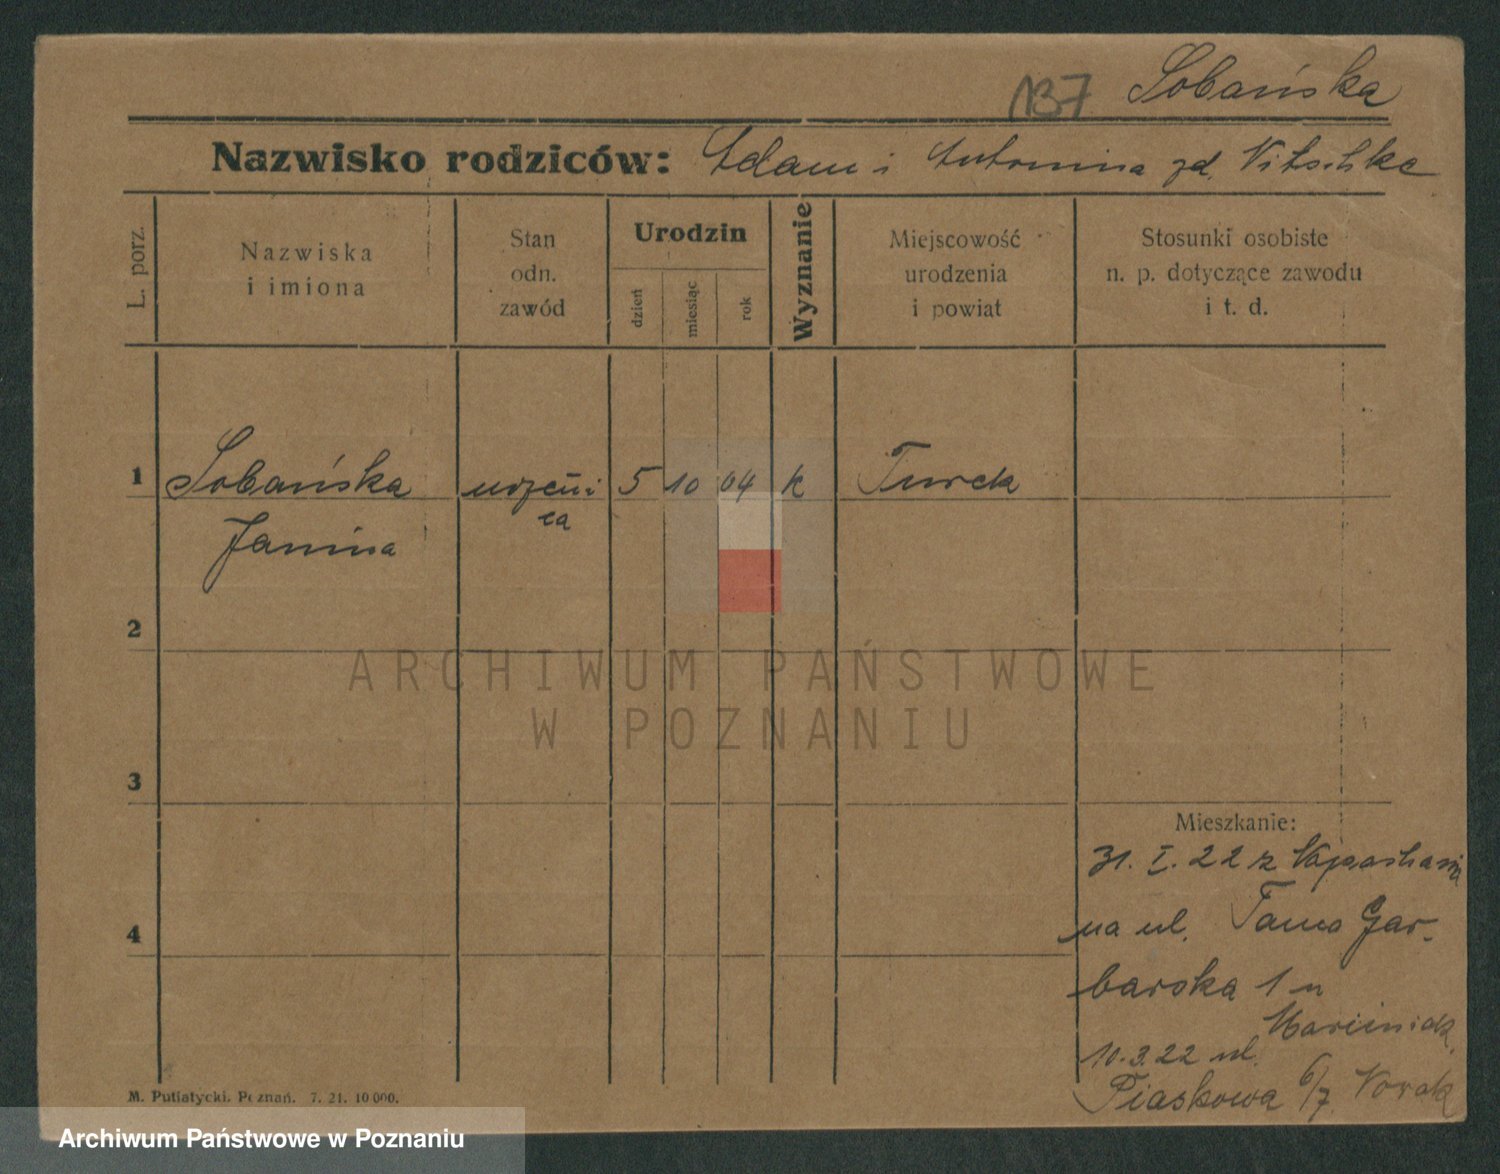 137 Sobańska
Nazwisko rodziców: Adam i Antonina zd.
L. porz.
Nazwiska
i imiona
Stan
odn.
zawód
Urodzin
dzień
miesiąc
rok
Wyznanie
Miejscowość
urodzenia
i powiat
Stosunki osobiste
n. p. dotyczące zawodu
i t. d.
1 Sobańska uczeni 5 10 04 k Turek
ca
Janina
2
ARCHIWUM PAŃSTWOWE
W POZNANIU
3
Mieszkanie:
31. I. 22 z
4
na ul. Tama Gar-
barska 1 u
10.3.22 ul.
Piaskowa 6/7 Nowak
M. Putiatycki. Poznań. 7. 21. 10 000.
Archiwum Państwowe w Poznaniu